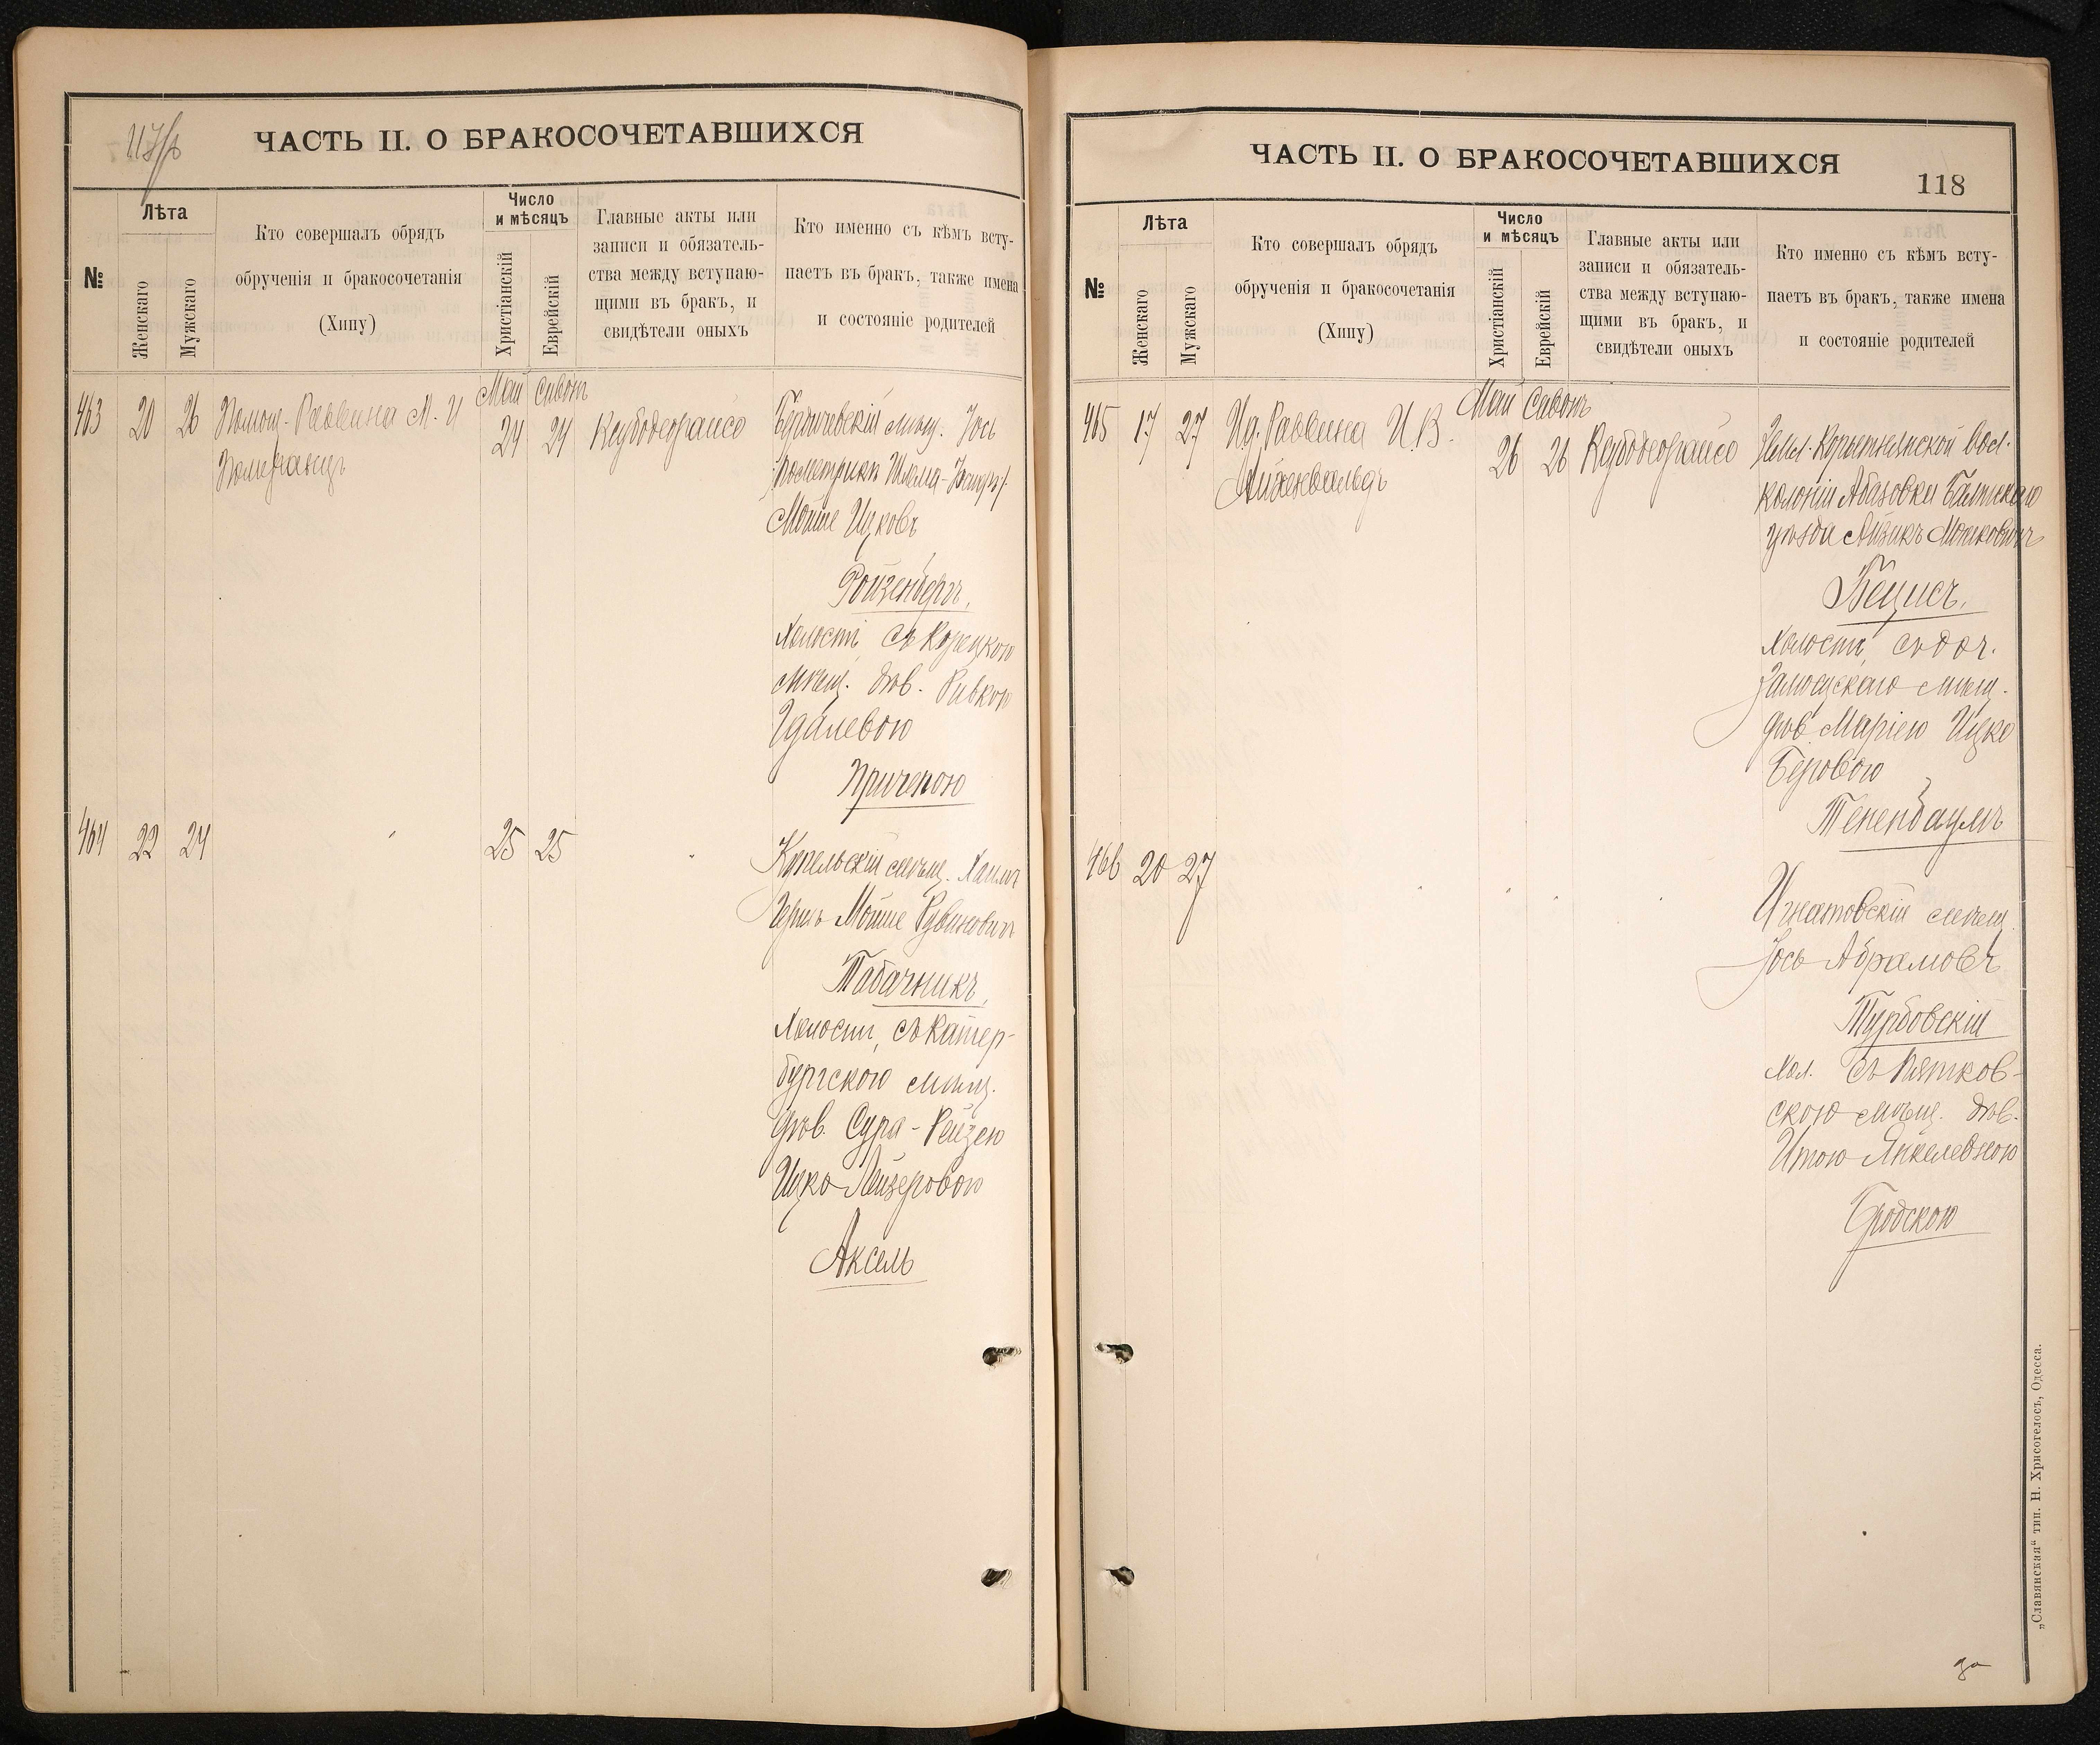 ЧАСТЬ II. О БРАКОСОЧЕТАВШИХСЯ
№
Лѣта
Женскаго
Мужскаго
Кто совершалъ обрядъ
обрученія и бракосочетанія
(Хипу)
Число
и мѣсяцъ
Христіанскій
Еврейскій
Главные акты или
записи и обязатель-
ства между вступаю-
щими въ бракъ, и
свидѣтели оныхъ
Кто именно съ кѣмъ всту-
паетъ въ бракъ, также имена
и состояніе родителей
463 20 26 Помощ. Раввина М. И
Померанцъ
Май Сивонъ
24 24 Ксубодеорайсо
Бердичевскій мѣщ. Іось
Мойше Ицковъ
Ройзенбергъ,
холост, съ Корецкою
мѣщ. дѣв. Ривкою
Гдалевою
Приченою
464 22 24 25 25
Купельскій мѣщ. Хаимъ
Герш Мойше Рувиновичъ
Табачникъ,
холост, съ Катер-
бургскою мѣщ.
дѣв. Сура-Рейзею
Ицко-Лейзеровою
Аксель
ЧАСТЬ II. О БРАКОСОЧЕТАВШИХСЯ
118
№
Лѣта
Женскаго
Мужскаго
Кто совершалъ обрядъ
обрученія и бракосочетанія
(Хипу)
Число
и мѣсяцъ
Христіанскій
Еврейскій
Главные акты или
записи и обязатель-
ства между вступаю-
щими въ бракъ, и
свидѣтели оныхъ
Кто именно съ кѣмъ всту-
паетъ въ бракъ, также имена
и состояніе родителей
465 17 27 И.д. Раввина И. В.
Айхенвальдъ
Май Сивонъ
26 26 Ксубодеорайсо
колоніи Абазовки Балтскаго
уѣзда Айзикъ Мошковичъ
Бецисъ,
холост, съ доч.
мѣщ.
дѣв. Маріею Ицко
Беровою
Тененбаумъ
466 20 27
Игнатовскій мѣщ.
Іось Абрамовъ
Турбовскій
хол. съ Пятков-
скою мѣщ. дѣв.
Итою Янкелевною
Бродскою
„Славянская“ тип. Н. Хрисогелосъ, Одесса.